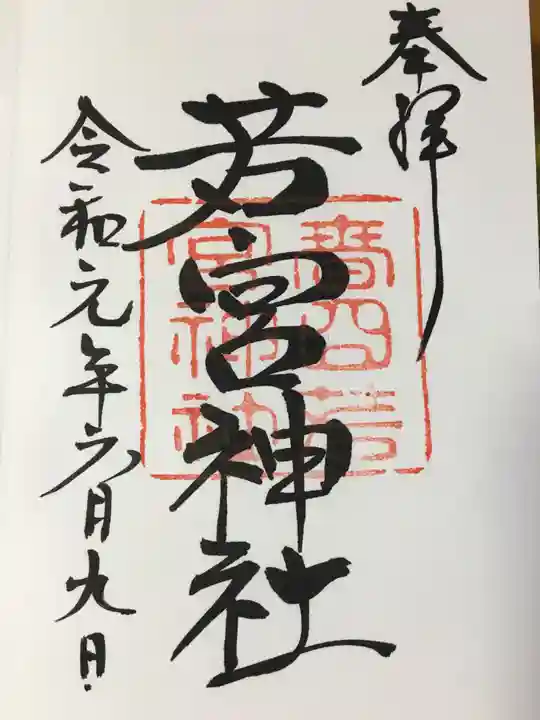 奉拝
若宮神社
春日若宮神社
令和元年六月九日